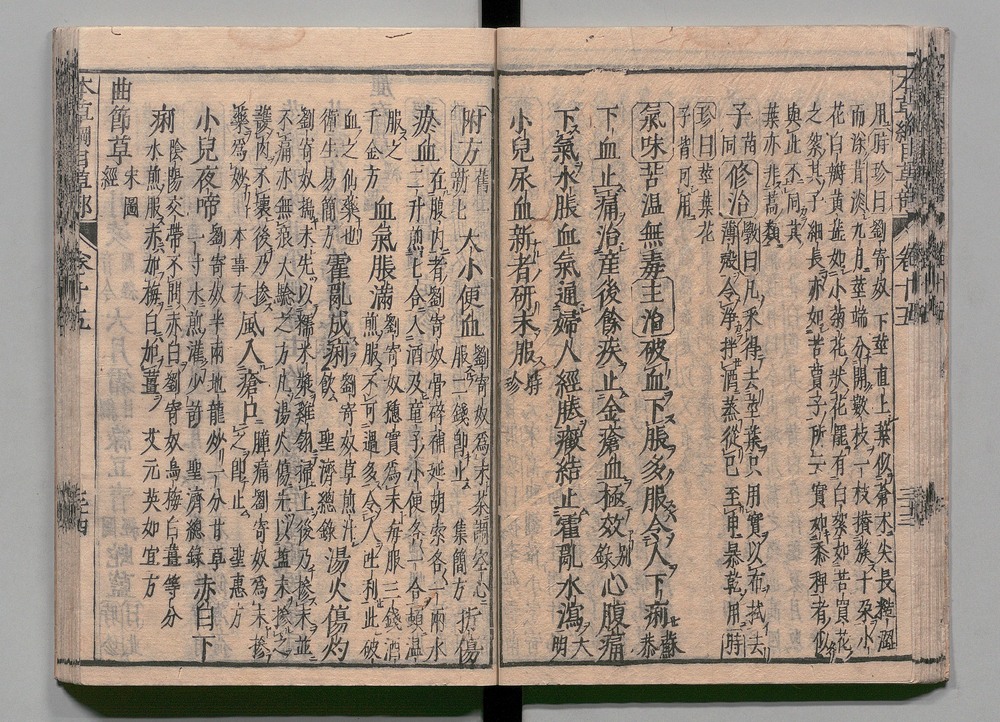 用時珍曰劉寄奴一莖直上葉似蒼朮尖長糙澀
而深背淡九月莖端分開數枝一枝攢簇十朵小
花白瓣黃蕊如小菊花狀花罷有白絮如苦蕒花
之絮其子細長亦如苦蕒子所云實如黍稗者似
與此不同其
葉亦非蒿類
子苗同修治斅曰凡采得去莖葉只用實以布拭去
薄殼令淨拌酒蒸從巳至申暴乾用時
珍曰莖葉花
子皆可用
氣味苦溫無毒主治破血下脹多服令人下痢蘇恭
下血止痛治產後餘疾止金瘡血極效別錄心腹痛
下氣水脹血氣通婦人經脈癥結止霍亂水瀉大明
小兒尿血新者研末服時珍
附方舊一新七大小便血劉寄奴為末茶調空心
服二錢即止集簡方折傷
瘀血在腹內者劉寄奴骨碎補延胡索各一兩水
二升煎七合入酒及童子小便各一合頓溫
服之
千金方血氣脹滿劉寄奴穗實為末每服三錢酒
煎服不可過多令人吐利此破
血之仙藥也
衛生易簡方霍亂成痢劉寄奴草煎汁
飲聖濟總錄湯火傷灼
劉寄奴搗末先以糯米漿雞翎掃上後乃摻末並
不痛亦無痕大驗之方凡湯火傷先以鹽末摻之
護肉不壞後乃摻
藥為妙本事方風入瘡口腫痛劉寄奴為末摻
之即止聖惠方
小兒夜啼劉寄奴半兩地龍炒一分甘草
一寸水煎灌少許聖濟總錄赤白下
痢陰陽交帶不問赤白劉寄奴烏梅白薑等分
水煎服赤加梅白加薑艾元英如宜方
曲節草宋圖經
本草綱目草部
卷十五
三十四